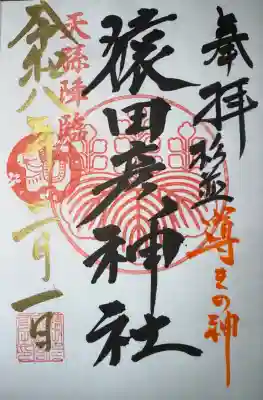 奉拝
杉並
導きの神
猿田彦神社
天孫降臨
令和八年二月一日